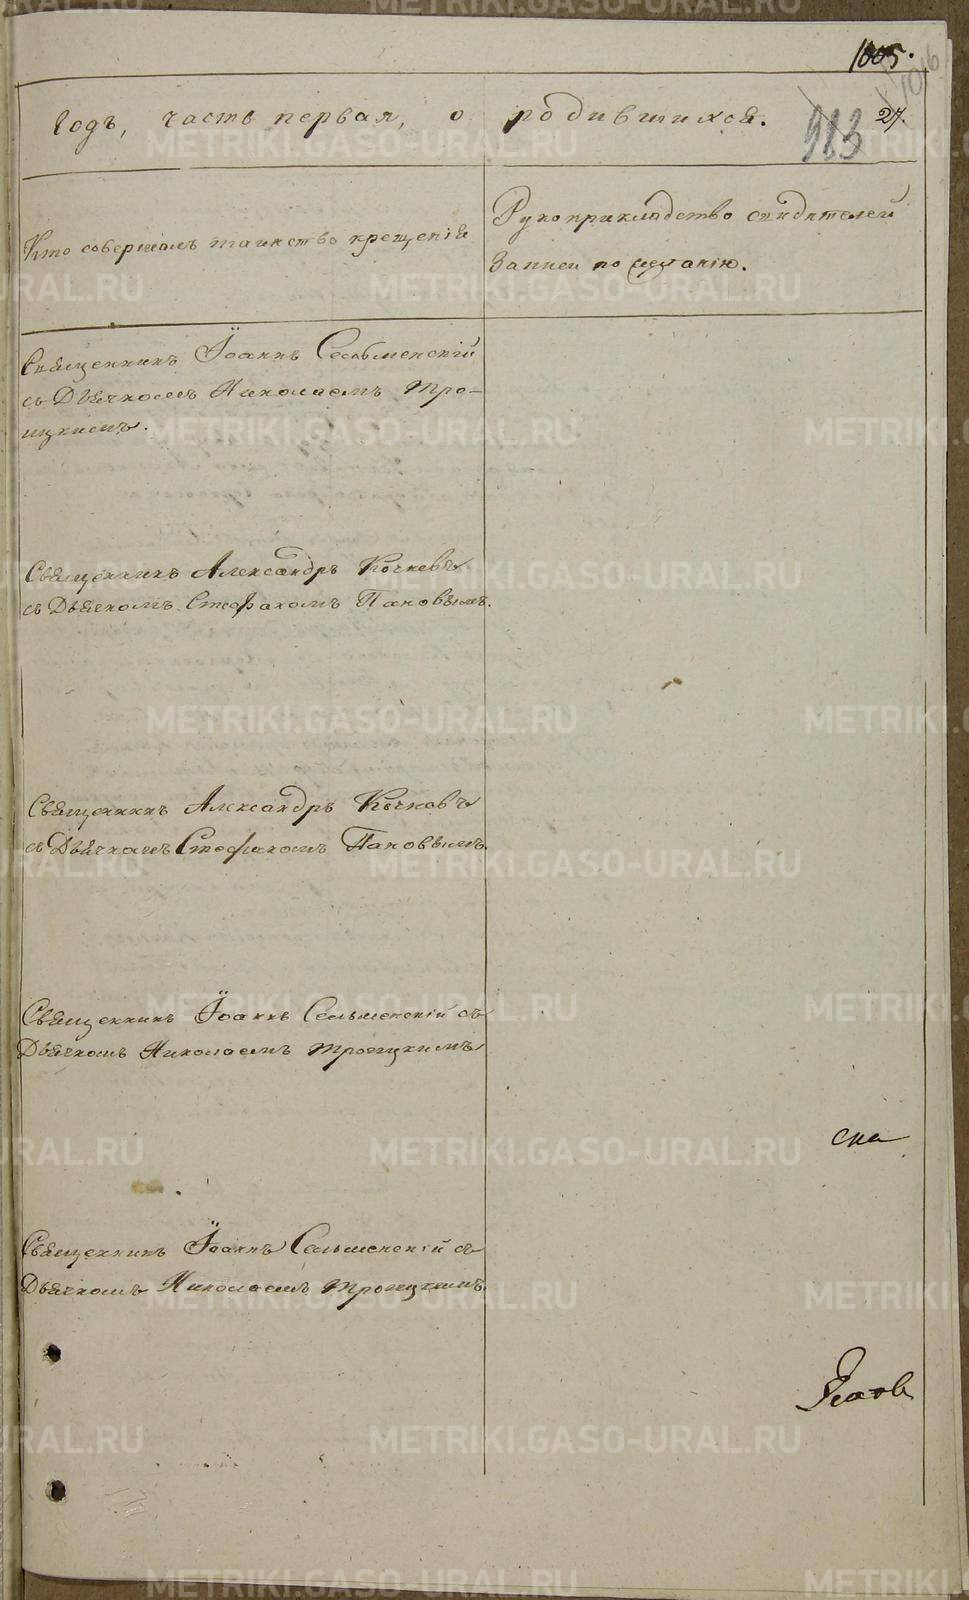 1005.
1016
годъ, часть первая, о родившихся.
983
27.
Кто совершалъ таинство крещенія
Рукоприкладство свидѣтелей
записи по желанію.
Священникъ Іоаннъ Сельменскій
съ Дьячкомъ Николаемъ Тро-
ицкимъ.
Священникъ Александръ Кочневъ
съ Дьячкомъ Стефаномъ Пановымъ.
Священникъ Александръ Кочневъ
съ Дьячкомъ Стефаномъ Пановымъ.
Священникъ Іоаннъ Сельменскій съ
Дьячкомъ Николаемъ Троицкимъ
ска
Священникъ Іоаннъ Сельменскій съ
Дьячкомъ Николаемъ Троицкимъ.
METRIKI.GASO-URAL.RU